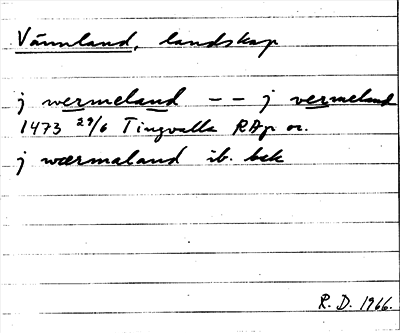 Värmland, landskap
j wermeland -- j vermeland
1473 29/6 Tingvalla RAp or.
j wærmaland ib. bak
R. D. 1966.